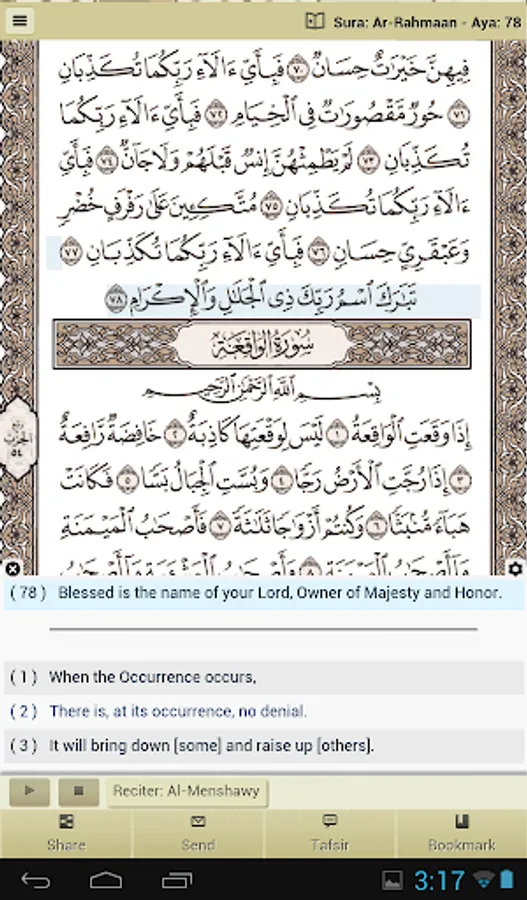 Sura: Ar-Rahmaan - Aya: 78
فِيهِنَّ خَيْرَٰتٌ حِسَانٌ ٧٠ فَبِأَيِّ ءَالَآءِ رَبِّكُمَا تُكَذِّبَانِ
٧١ حُورٌ مَّقْصُورَٰتٌ فِي ٱلْخِيَامِ ٧٢ فَبِأَيِّ ءَالَآءِ رَبِّكُمَا
تُكَذِّبَانِ ٧٣ لَمْ يَطْمِثْهُنَّ إِنسٌ قَبْلَهُمْ وَلَا جَآنٌّ ٧٤ فَبِأَيِّ
ءَالَآءِ رَبِّكُمَا تُكَذِّبَانِ ٧٥ مُتَّكِـِٔينَ عَلَىٰ رَفْرَفٍ خُضْرٍ
وَعَبْقَرِيٍّ حِسَانٍ ٧٦ فَبِأَيِّ ءَالَآءِ رَبِّكُمَا تُكَذِّبَانِ ٧٧
تَبَٰرَكَ ٱسْمُ رَبِّكَ ذِي ٱلْجَلَٰلِ وَٱلْإِكْرَامِ ٧٨
سُورَةُ الوَاقِعَةِ
بِسْمِ ٱللَّهِ ٱلرَّحْمَٰنِ ٱلرَّحِيمِ
إِذَا وَقَعَتِ ٱلْوَاقِعَةُ ١ لَيْسَ لِوَقْعَتِهَا كَاذِبَةٌ ٢ خَافِضَةٌ رَّافِعَةٌ
٣ إِذَا رُجَّتِ ٱلْأَرْضُ رَجًّا ٤ وَبُسَّتِ ٱلْجِبَالُ بَسًّا ٥ فَكَانَتْ
هَبَآءً مُّنۢبَثًّا ٦ وَكُنتُمْ أَزْوَٰجًا ثَلَٰثَةً ٧ فَأَصْحَٰبُ ٱلْمَيْمَنَةِ
الحزب
٥٤
( 78 ) Blessed is the name of your Lord, Owner of Majesty and Honor.
( 1 ) When the Occurrence occurs,
( 2 ) There is, at its occurrence, no denial.
( 3 ) It will bring down [some] and raise up [others].
Reciter: Al-Menshawy
Share
Send
Tafsir
Bookmark
3:17